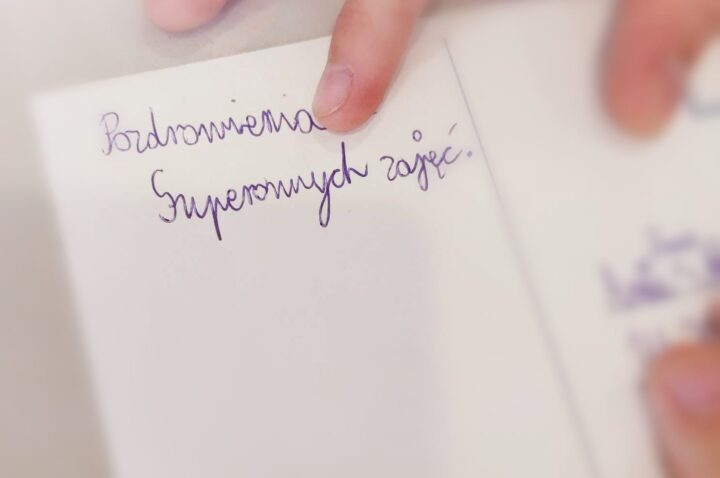 Pozdrowienia
Superowych zajęć.